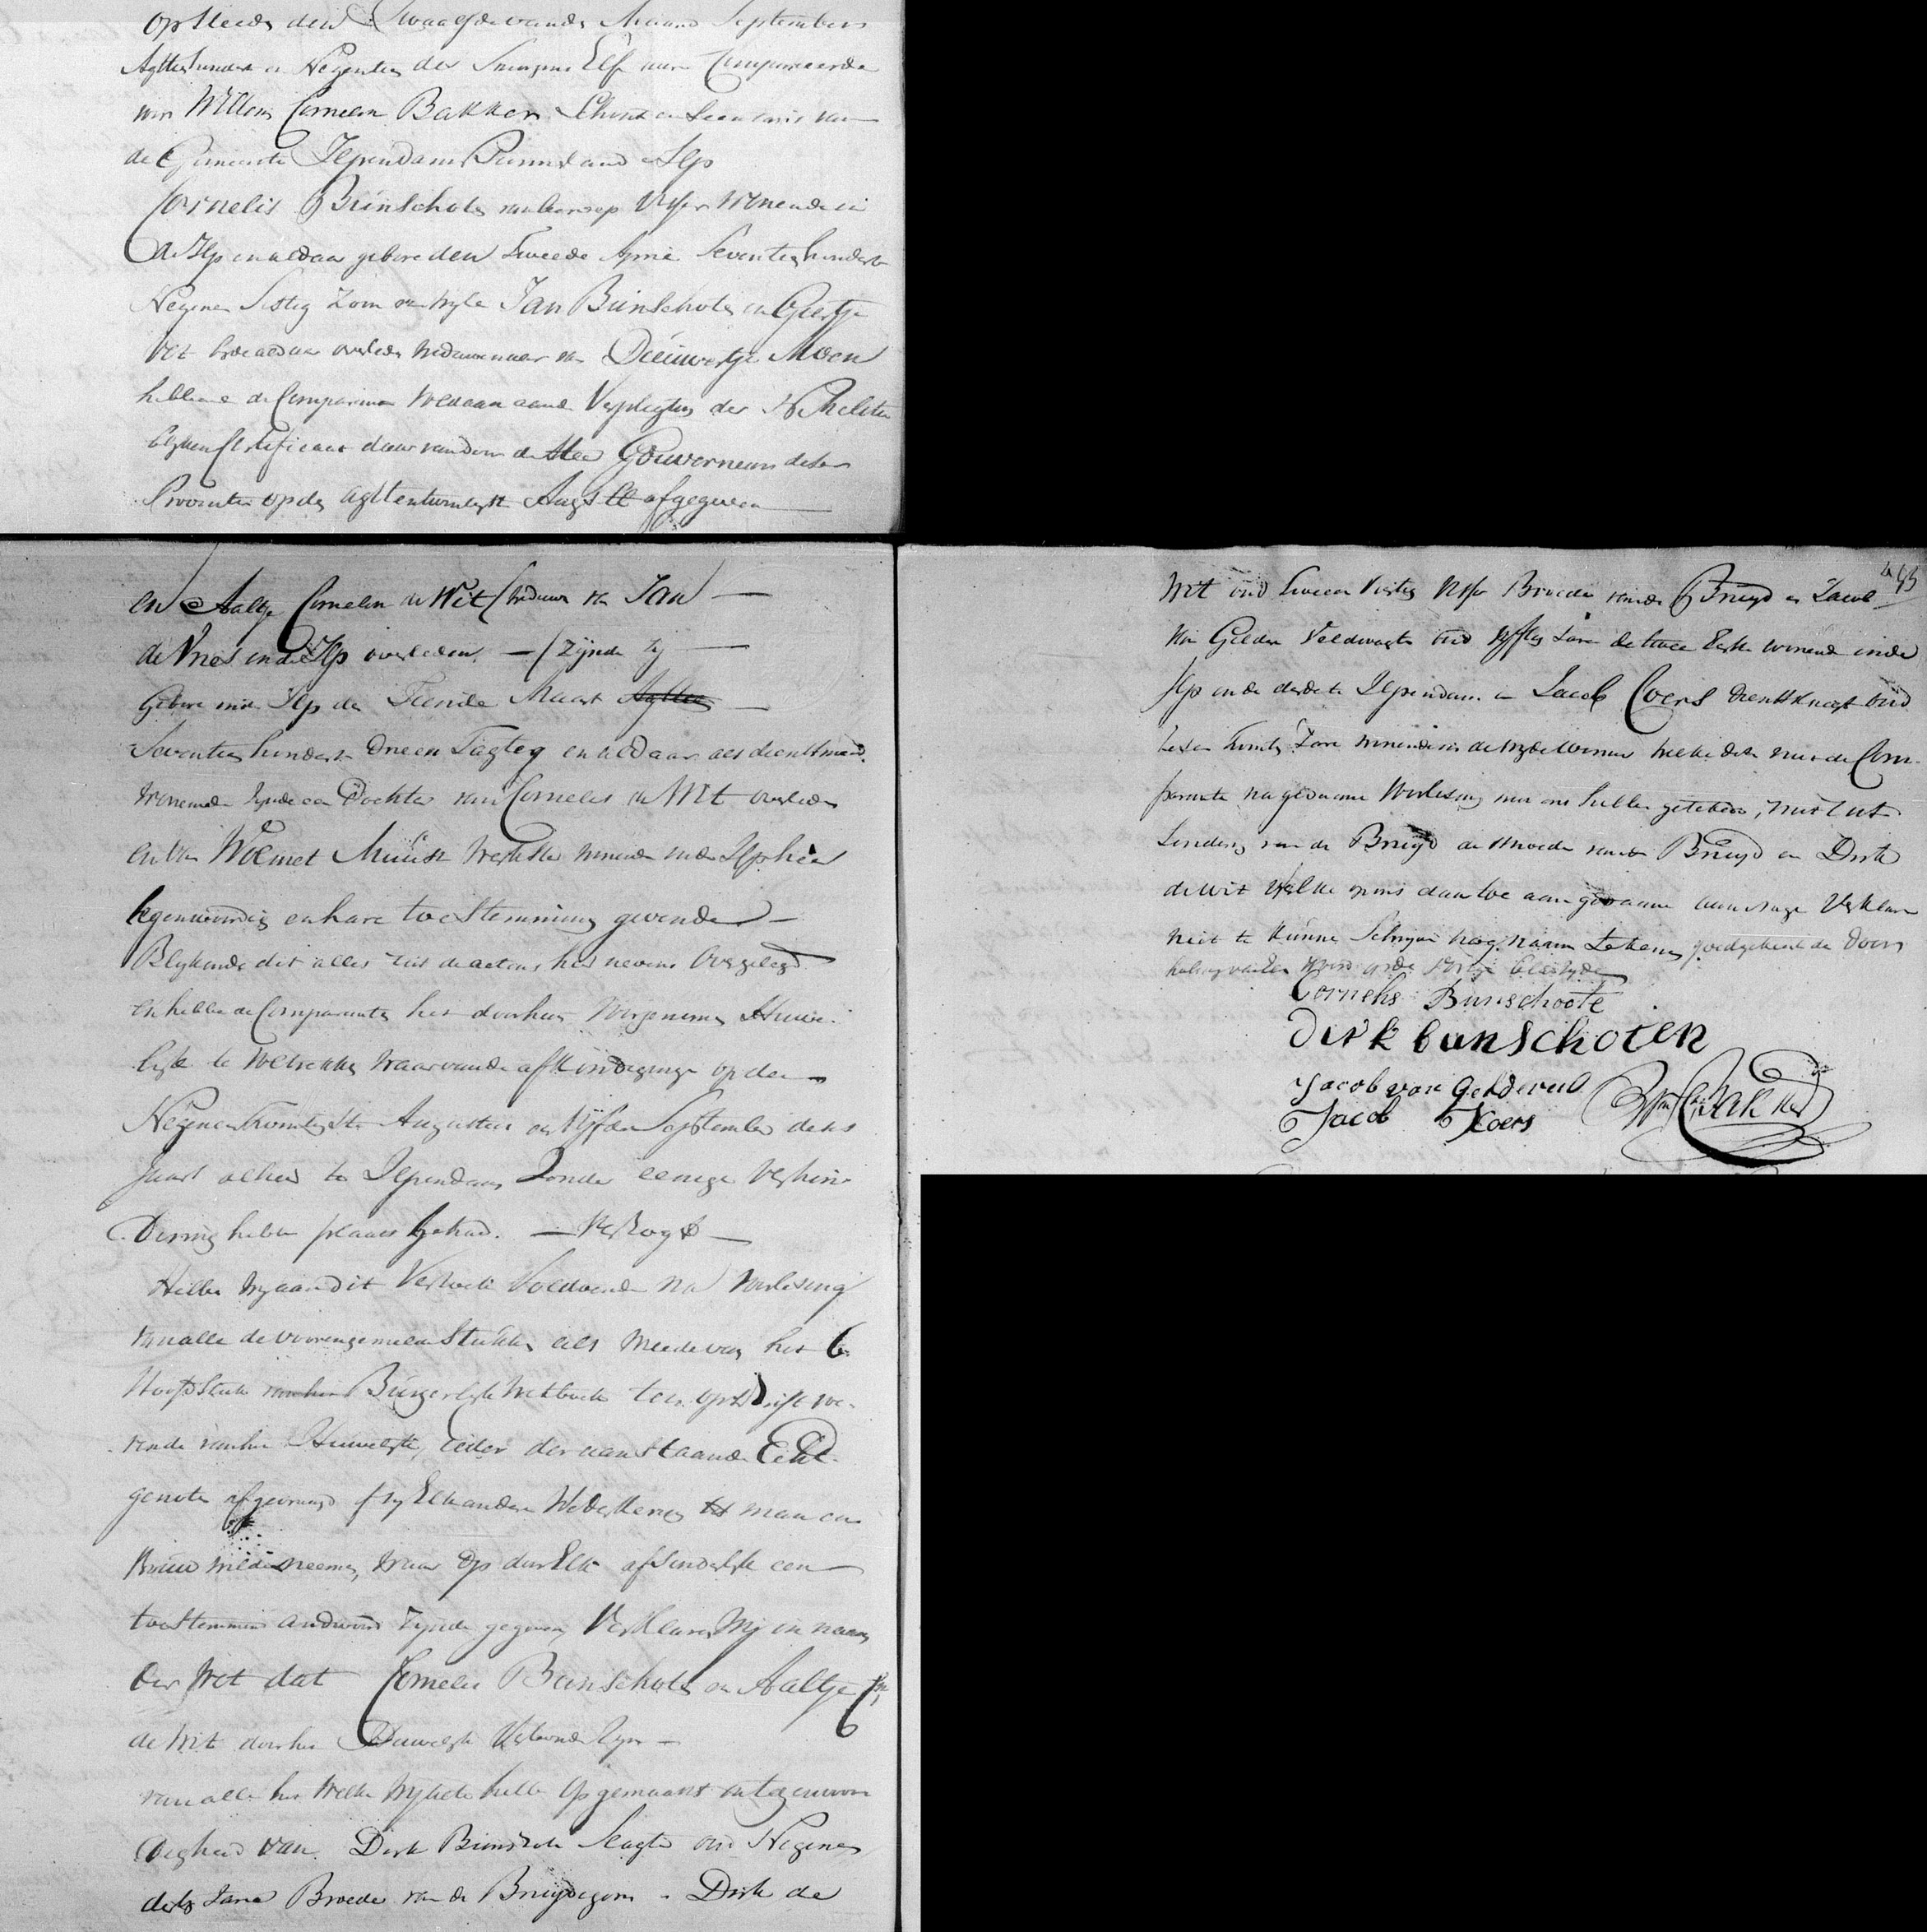 op Heeden den Twaalfde van de Maand September
Agttienhondert en Negentien des Smorgens Elf uure Compareerde
voor Willem Cornelis Bakker Schout en Secretaris van
de Gemeente Ilpendam Purmerland Ilp
Cornelis Bunschoten van beroep Visser Wonende in
de Ilp en aldaar gebore den Tweede April Seventienhondert
Negen en Sestig Zoon van wyle Jan Bunschoten en Geertje
Vet beide aldaar overleden Weduwenaar van Dieuwertje Moen
hebbende de Comparant voldaan aan de Verpligting der N Militie
blyken Certificaat daar van door de Heer Gouverneur deser
Provintie op den agttentwintigste Augst afgegeven
en Aaltje Cornelis de Wit (Weduwe van Jan
de Vries in de Ilp overleden. — (Zijnde zy
Gebore in de Ilp den Tiende Maart Agttien
Seventien hondert Drie en Tagteg en aldaar als dienstmeid
Wonende Zynde een Dochter van Cornelis de Wit overleden
en van Welmet Muusse Wonende in de Ilp hier
tegenwoordig en hare toestemming gevende
Blykende dit alles uit de actens hier nevens Overgelegd
en hebben de Comparanten het door hun Voorgenomen Huwe-
lyk te Voltrekken waar van de afkondiginge op den
Negenentwintigste Augustus en Vijfde September deses
Jaars alhier te Ilpendam Zonder eenige Verhin-
dering hebbe plaats gehad. — Versogt —
Hebbe wy aan dit Versoek Voldoende na Voorlesing
van alle de voorengemelde Stukken als Meede van het 6e
Hoofdstuk van het Burgerlyk Wetboek ten opschrift voe-
rende van het Huwelyk, ieder der aanstaande Echt-
genoten afgevraagd of zy Elkanderen Wederkering tot man en
Vrouw wilden neemen, waar Op door Elk afsonderlyk een
toestemmend andwoord Zynde gegeven Verklaren Wij in naam
der Wet dat Cornelis Bunschoten en Aaltje Cs
de Wit door het Huwelyk Verbonden Zyn —
van alle het Welke Wy Acte hebbe Opgemaakt in tegenwoor-
digheid van Dirk Bunschoten Slagter oud Negenen
dertig Jaren Broeder van de Bruydegom — Dirk de
495
Wit oud Tweeen Veertig Visser Broeder van de Bruyd en Jacob
van Gelder Veldwagter oud Vyfftig Jaren de twee Eerste wonende in de
Ilp en de derde te Ilpendam en Jacob Coers Dienstknegt oud
Twintig Jaren wonende in de Wyde Wormer welke deze met de Com-
paranten na gedaane Voorlesing met ons hebben geteekend, met uit-
sondering van de Bruyd de Moeder van de Bruyd en Dirk
de Wit Welke op ons daar toe aan gedaane aanvrage Verklaren
niet te kunne Schryven nog naam tekenen goedgekeurd de door-
haling van een woord op de vorige bladzyde
Cornelis Bunschoote
dirk bunschoten
Jacob van Gelder veld
Jacob Koers
Wm Cs Bakker